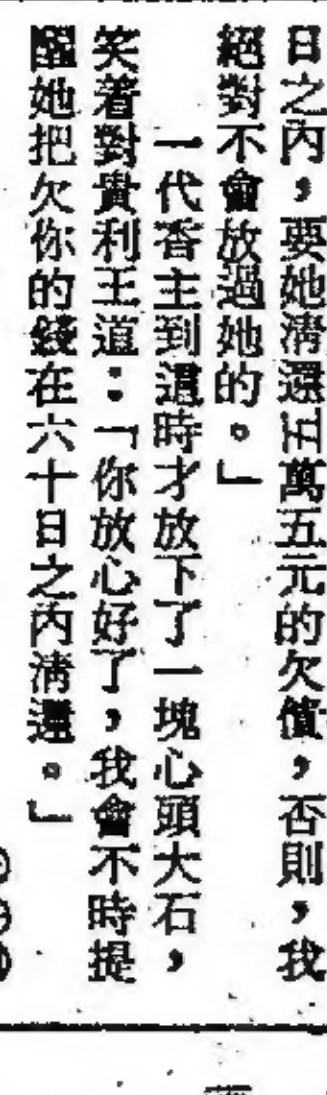 日之內，要她清還五萬五元的欠債，否則，我
絕對不會放過她的。」
一代香主到這時才放下了一塊心頭大石，
笑着對貴利王道：「你放心好了，我會不時提
醒她把欠你的錢在六十日之內清還。」